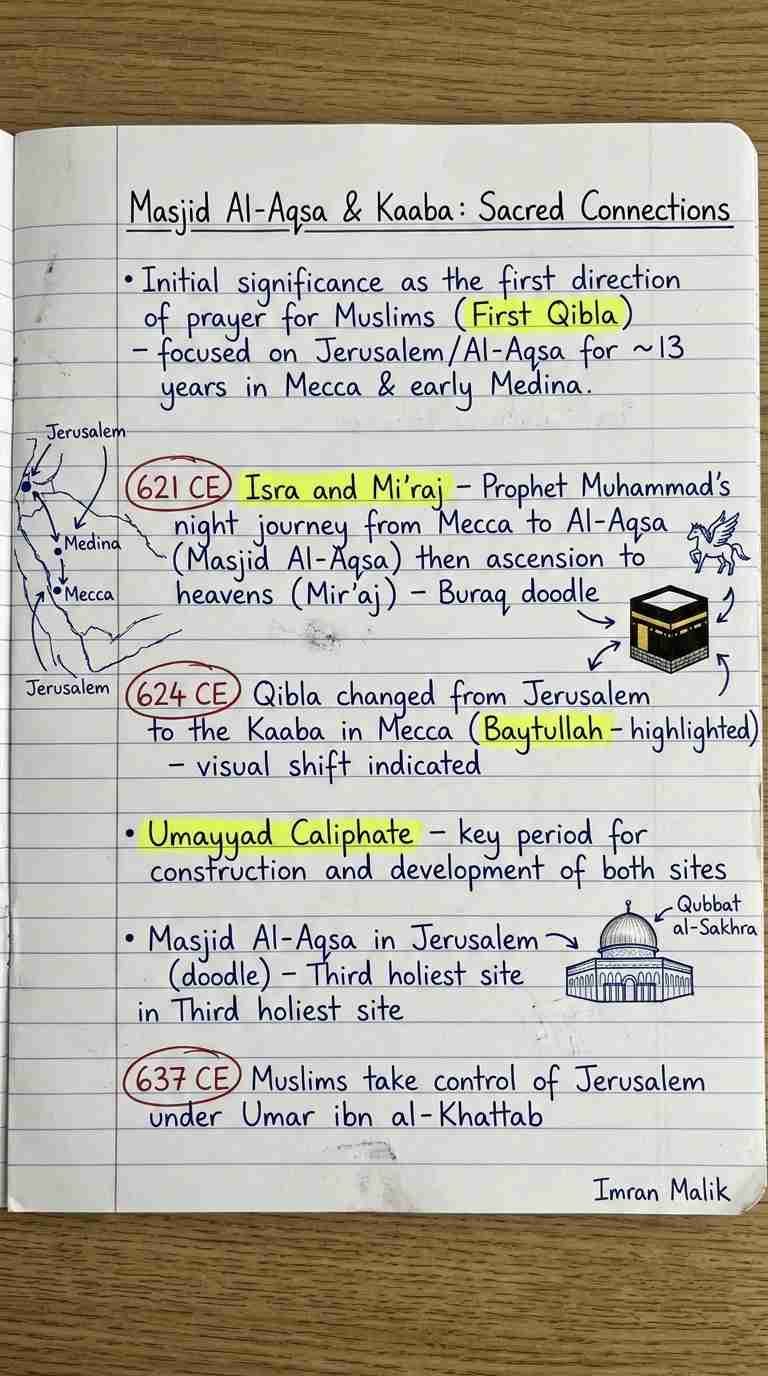 Masjid Al-Aqsa & Kaaba: Sacred Connections
• Initial significance as the first direction
of prayer for Muslims (First Qibla)
– focused on Jerusalem/Al-Aqsa for ~13
years in Mecca & early Medina.
Jerusalem
Medina
Mecca
Jerusalem
621 CE Isra and Mi'raj – Prophet Muhammad's
night journey from Mecca to Al-Aqsa
(Masjid Al-Aqsa) then ascension to
heavens (Mir'aj) – Buraq doodle
624 CE Qibla changed from Jerusalem
to the Kaaba in Mecca (Baytullah – highlighted)
– visual shift indicated
• Umayyad Caliphate – key period for
construction and development of both sites
• Masjid Al-Aqsa in Jerusalem
(doodle) – Third holiest site
in Third holiest site
Qubbat
al-Sakhra
637 CE Muslims take control of Jerusalem
under Umar ibn al-Khattab
Imran Malik